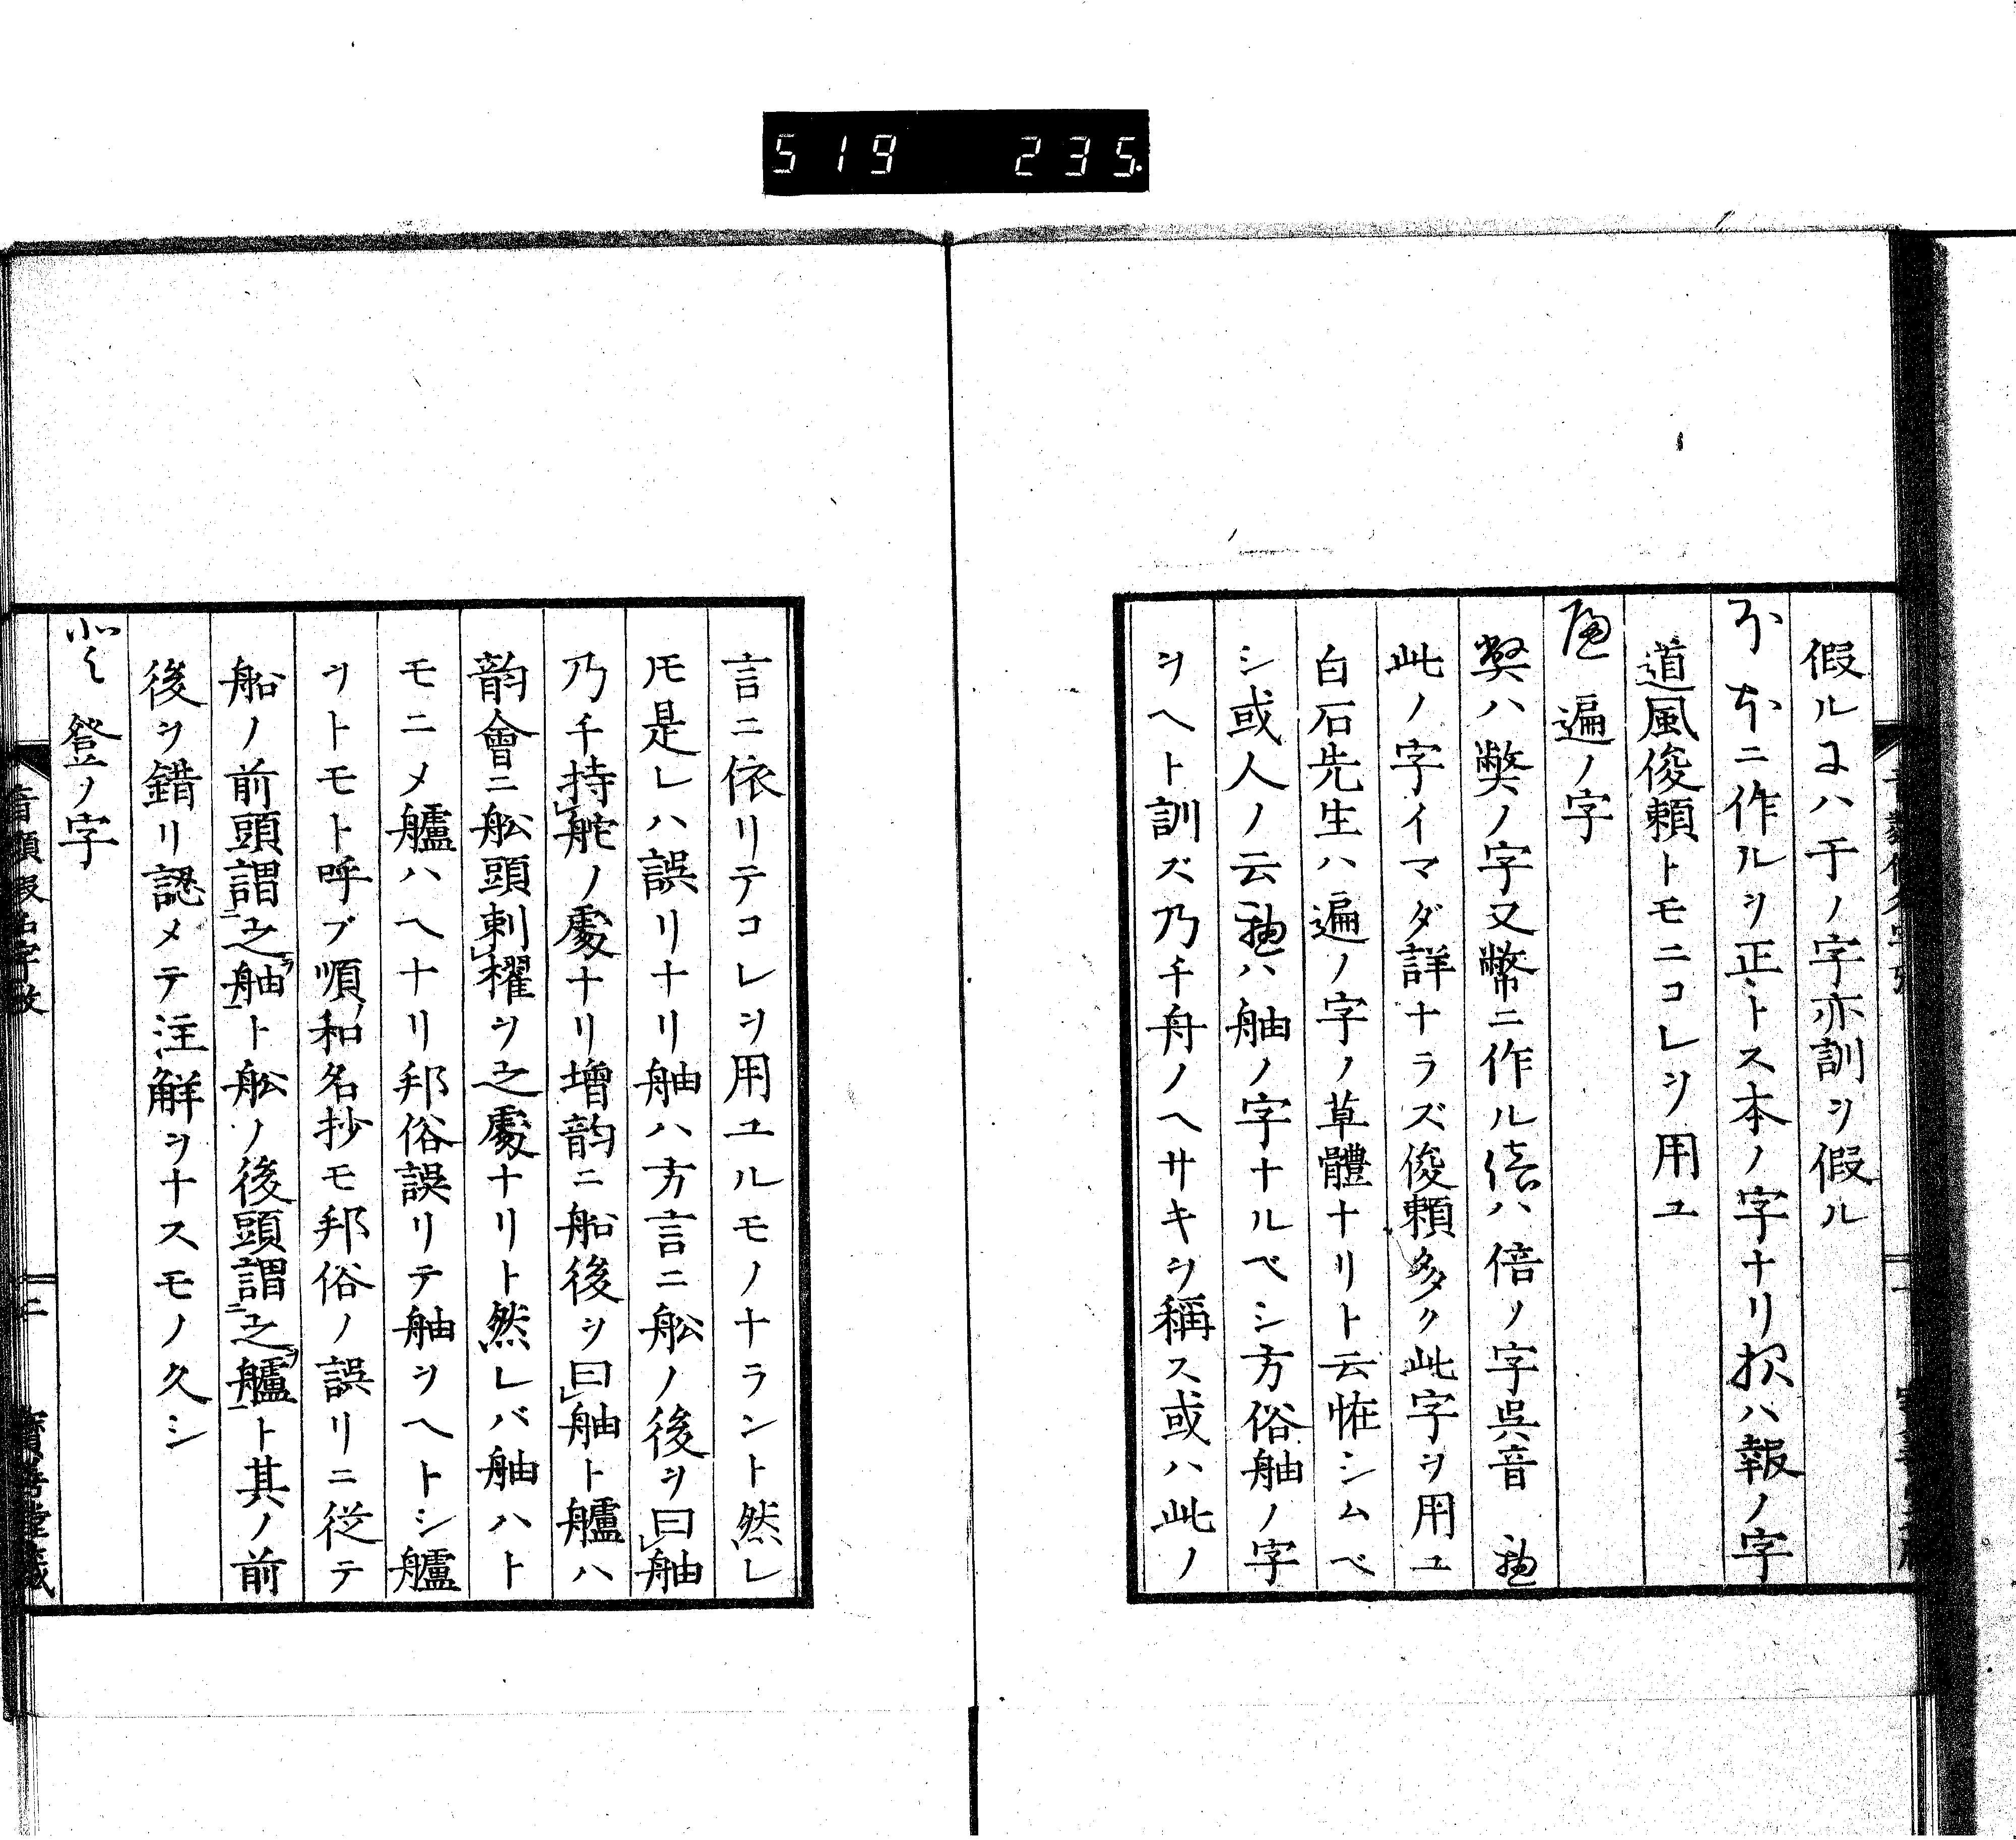 519 235
假ルハ于ノ字亦訓ヲ假ル
ニ作ルヲ正トス本ノ字ナリハ報ノ字
道風俊頼トモニコレヲ用ユ
遍ノ字
獘ハ弊ノ字又幣ニ作ルハ倍ノ字呉音
此ノ字イマダ詳ナラズ俊頼多ク此字ヲ用ユ
白石先生ハ遍ノ字ノ草體ナリト云恠シムベ
シ或人ノ云ハ舳ノ字ナルベシ方俗舳ノ字
ヲヘト訓ズ乃チ舟ノヘサキヲ稱ス或ハ此ノ
言ニ依リテコレヲ用ユルモノナラント然レ
𪜈是レハ誤リナリ舳ハ方言ニ舩ノ後ヲ曰舳
乃チ持舵ノ處ナリ增韵ニ船後ヲ曰舳ト艫ハ
韵會ニ舩頭刺櫂ヲ之處ナリト然レバ舳ハト
モニメ艫ハヘナリ邦俗誤リテ舳ヲヘトシ艫
ヲトモト呼ブ順和名抄モ邦俗ノ誤リニ従テ
船ノ前頭謂之舳ト舩ノ後頭謂之艫ト其ノ前
後ヲ錯リ認メテ注觧ヲナスモノ久シ
登ノ字
音類假名字攷 二